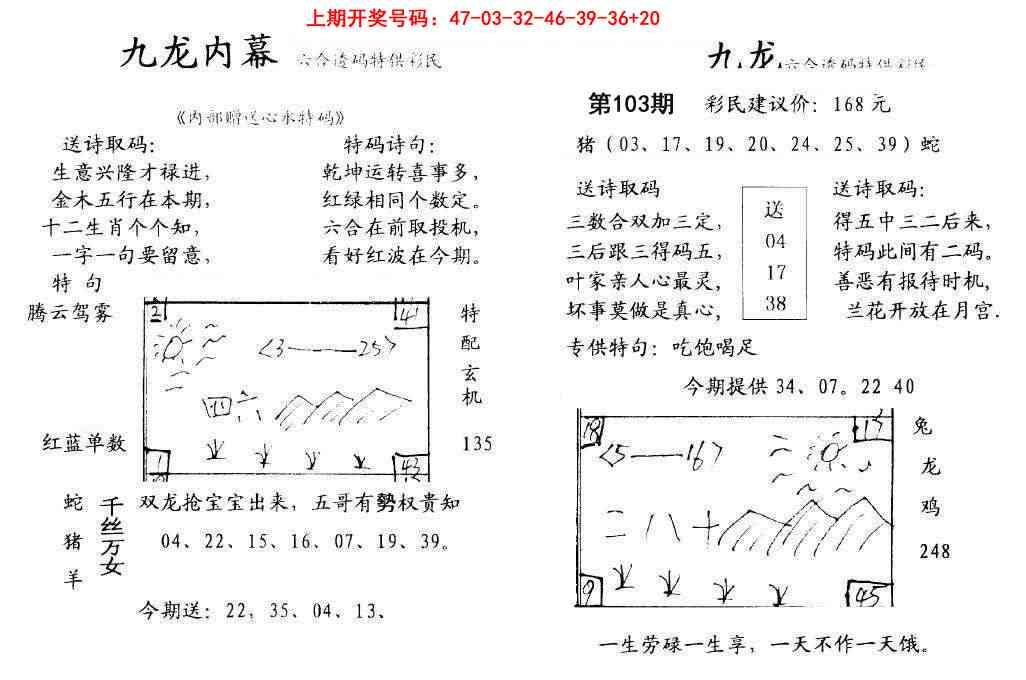 上期开奖号码：47-03-32-46-39-36+20
九龙内幕 六合透码特供彩民
《内部赠送心水特码》
送诗取码：
生意兴隆才禄进，
金木五行在本期，
十二生肖个个知，
一字一句要留意，
特码诗句：
乾坤运转喜事多，
红绿相同个数定。
六合在前取投机，
看好红波在今期。
特 句
腾云驾雾
红蓝单数
2
41
<3——25>
四六
1
43
特
配
玄
机
135
蛇
猪
羊
千
丝
万
女
双龙抢宝宝出来，五哥有勢权贵知
04、22、15、16、07、19、39。
今期送：22，35、04、13、
九龙 六合透码特供彩民
第103期 彩民建议价：168元
猪（03、17、19、20、24、25、39）蛇
送诗取码
三数合双加三定，
三后跟三得码五，
叶家亲人心最灵，
坏事莫做是真心，
送
04
17
38
送诗取码：
得五中三二后来，
特码此间有二码。
善恶有报待时机，
兰花开放在月宫.
专供特句：吃饱喝足
今期提供 34、07。22 40
18
17
<5——16>
二八十
9
45
兔
龙
鸡
248
一生劳碌一生享，一天不作一天饿。